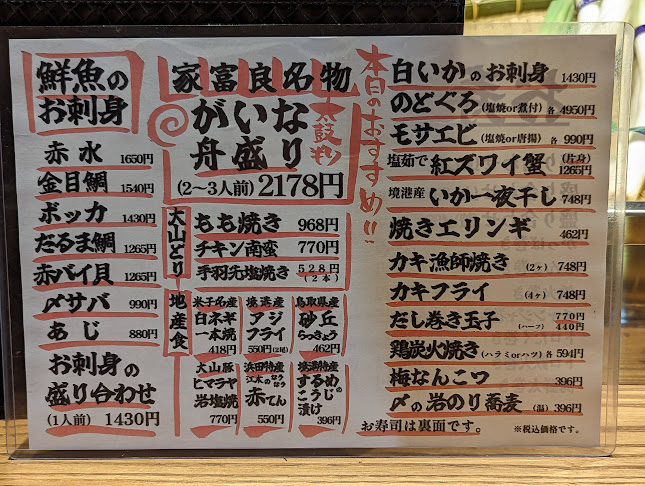 鮮魚の
お刺身
赤水 1650円
金目鯛 1540円
ボッカ 1430円
たるま鯛 1265円
赤バイ貝 1265円
〆サバ 990円
あじ 880円
お刺身の
盛り合わせ
(1人前) 1430円
家富良名物
がいな
舟盛り
太鼓判
(2〜3人前) 2178円
大山どり
もも焼き 968円
チキン南蛮 770円
手羽先塩焼き 528円
(2本)
地産食
米子名産
白ネギ
一本焼
418円
境港産
アジ
フライ
550円(2尾)
鳥取県産
砂丘
らっきょう
462円
大山豚
ヒマラヤ
岩塩焼
770円
浜田特産
江木の
赤てん
550円
するめの
こうじ
漬け
396円
本日のおすすめ!!
白いかのお刺身 1430円
のどぐろ(塩焼or煮付) 各4950円
モサエビ(塩焼or唐揚) 各990円
塩茹で紅ズワイ蟹 (片身)
1265円
境港産いか一夜干し 748円
焼きエリンギ 462円
カキ漁師焼き (2ヶ) 748円
カキフライ (4ヶ) 748円
だし巻き玉子 770円
(ハーフ) 440円
鶏炭火焼き(ハラミorハツ) 各594円
梅なんこつ 396円
〆の岩のり蕎麦 (温) 396円
お寿司は裏面です。 ※税込価格です。